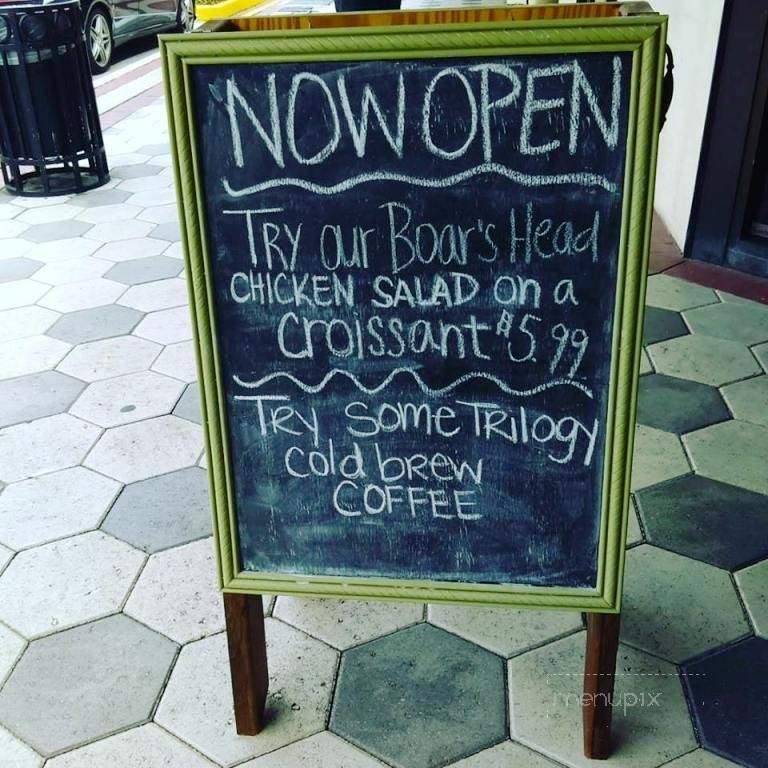 NOW OPEN
TRY our Boar's Head
CHICKEN SALAD on a
Croissant $5.99
TRY Some TRilogy
cold brew
COFFEE
menupix